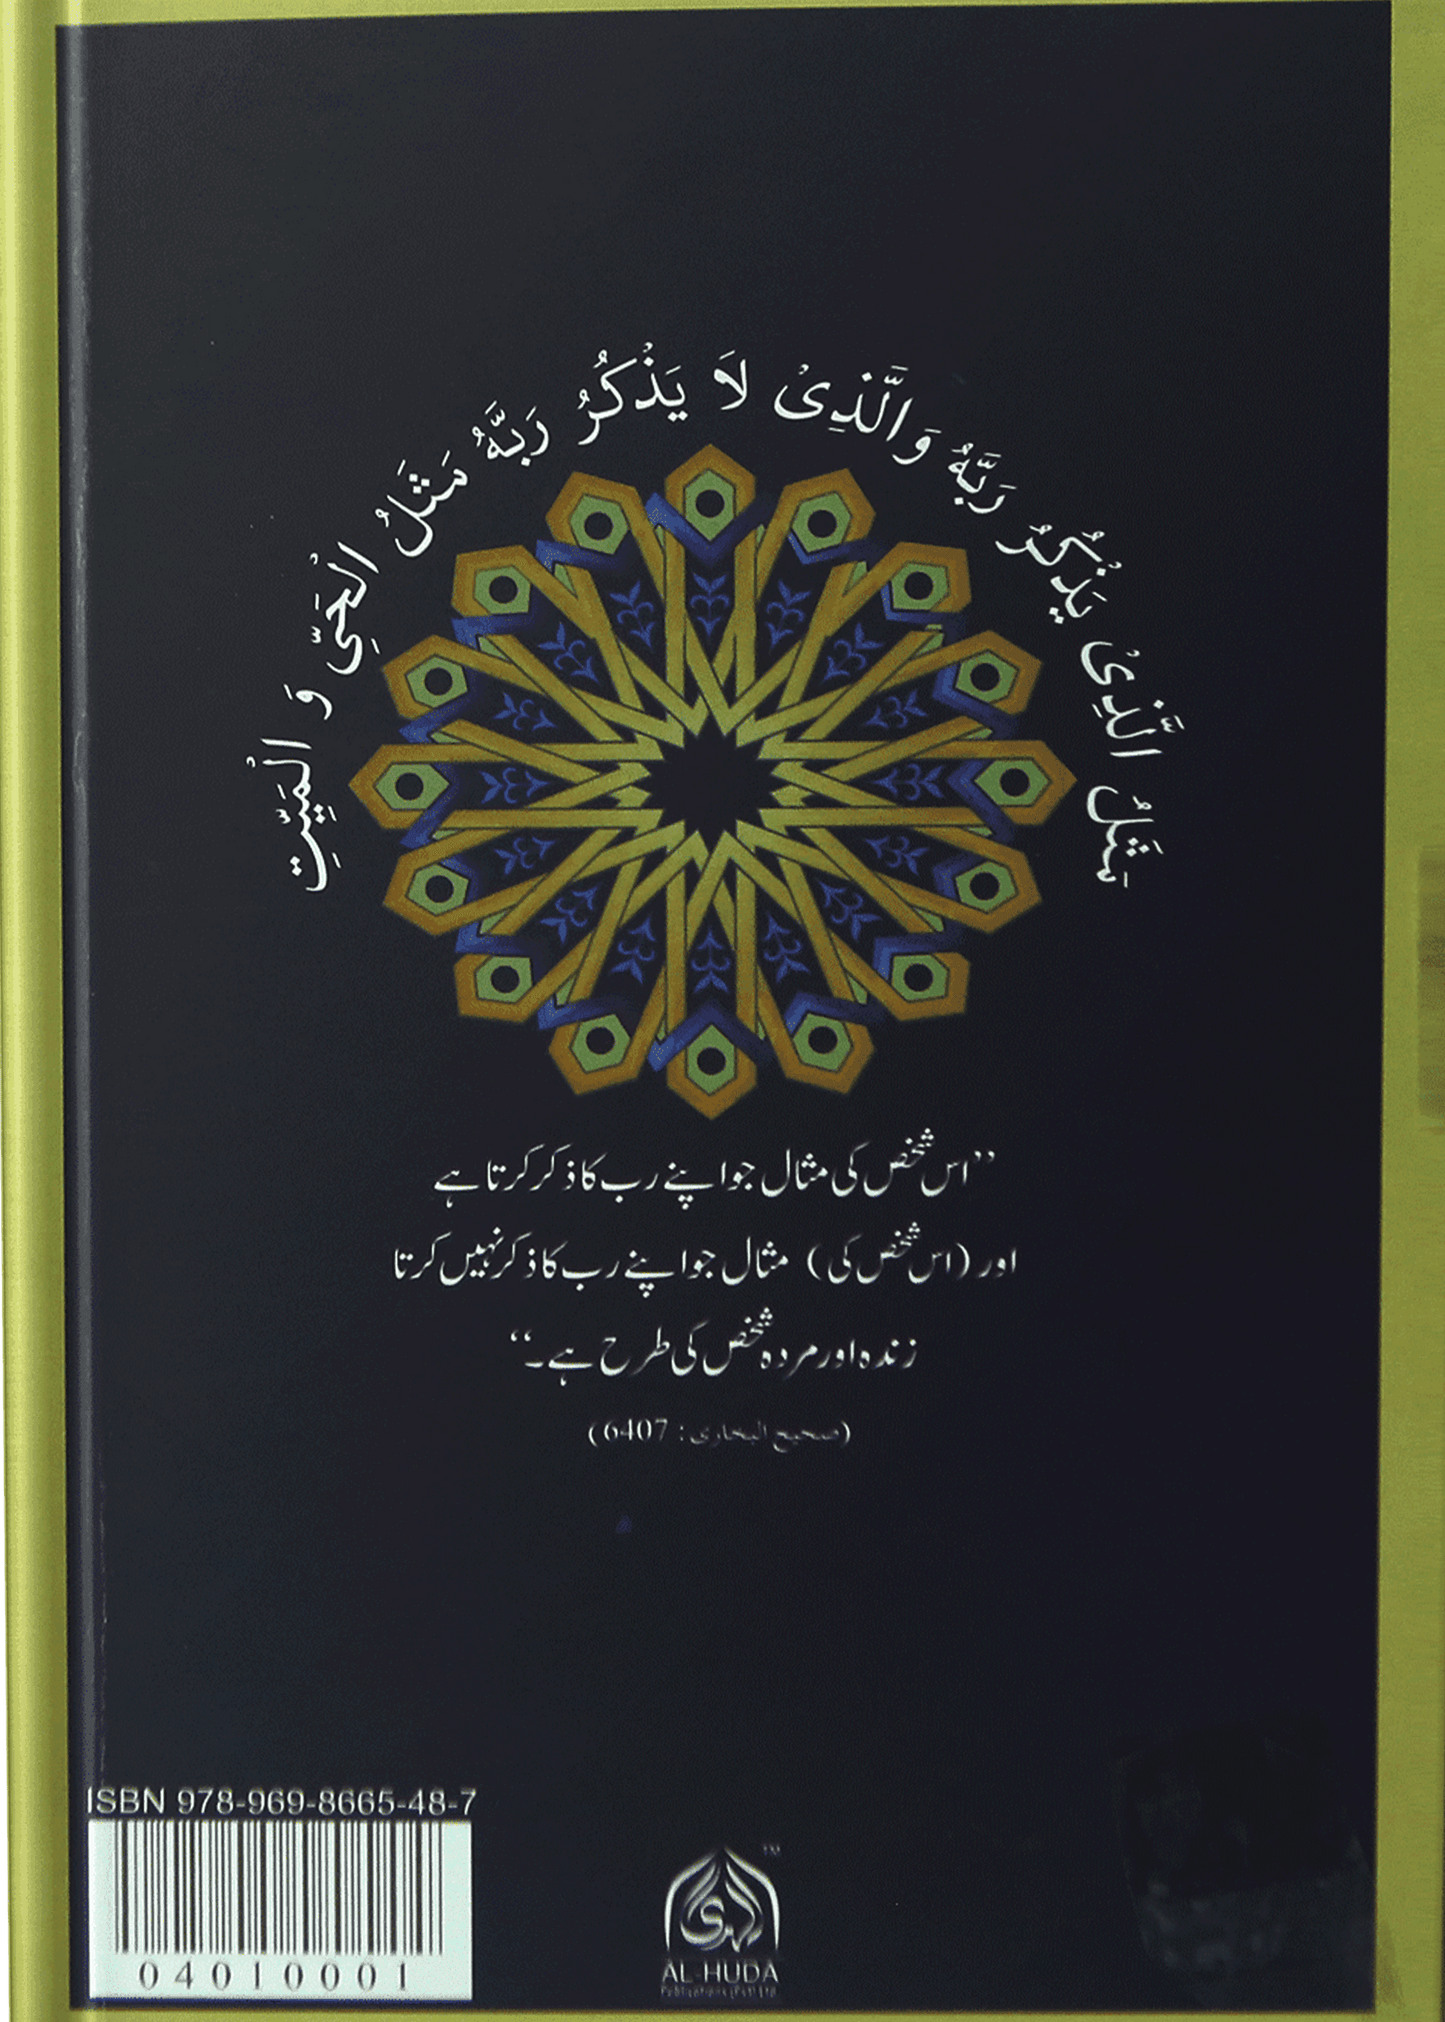 مَثَلُ الَّذِىْ يَذْكُرُ رَبَّهُ وَالَّذِىْ لَا يَذْكُرُ رَبَّهُ مَثَلُ الْحَىِّ وَ الْمَيِّتِ
’’اس شخص کی مثال جو اپنے رب کا ذکر کرتا ہے
اور (اس شخص کی) مثال جو اپنے رب کا ذکر نہیں کرتا
زندہ اور مردہ شخص کی طرح ہے۔‘‘
(صحيح البخارى: 6407)
ISBN 978-969-8665-48-7
04010001
الهدى
TM
AL-HUDA
Publications (Pvt) Ltd.